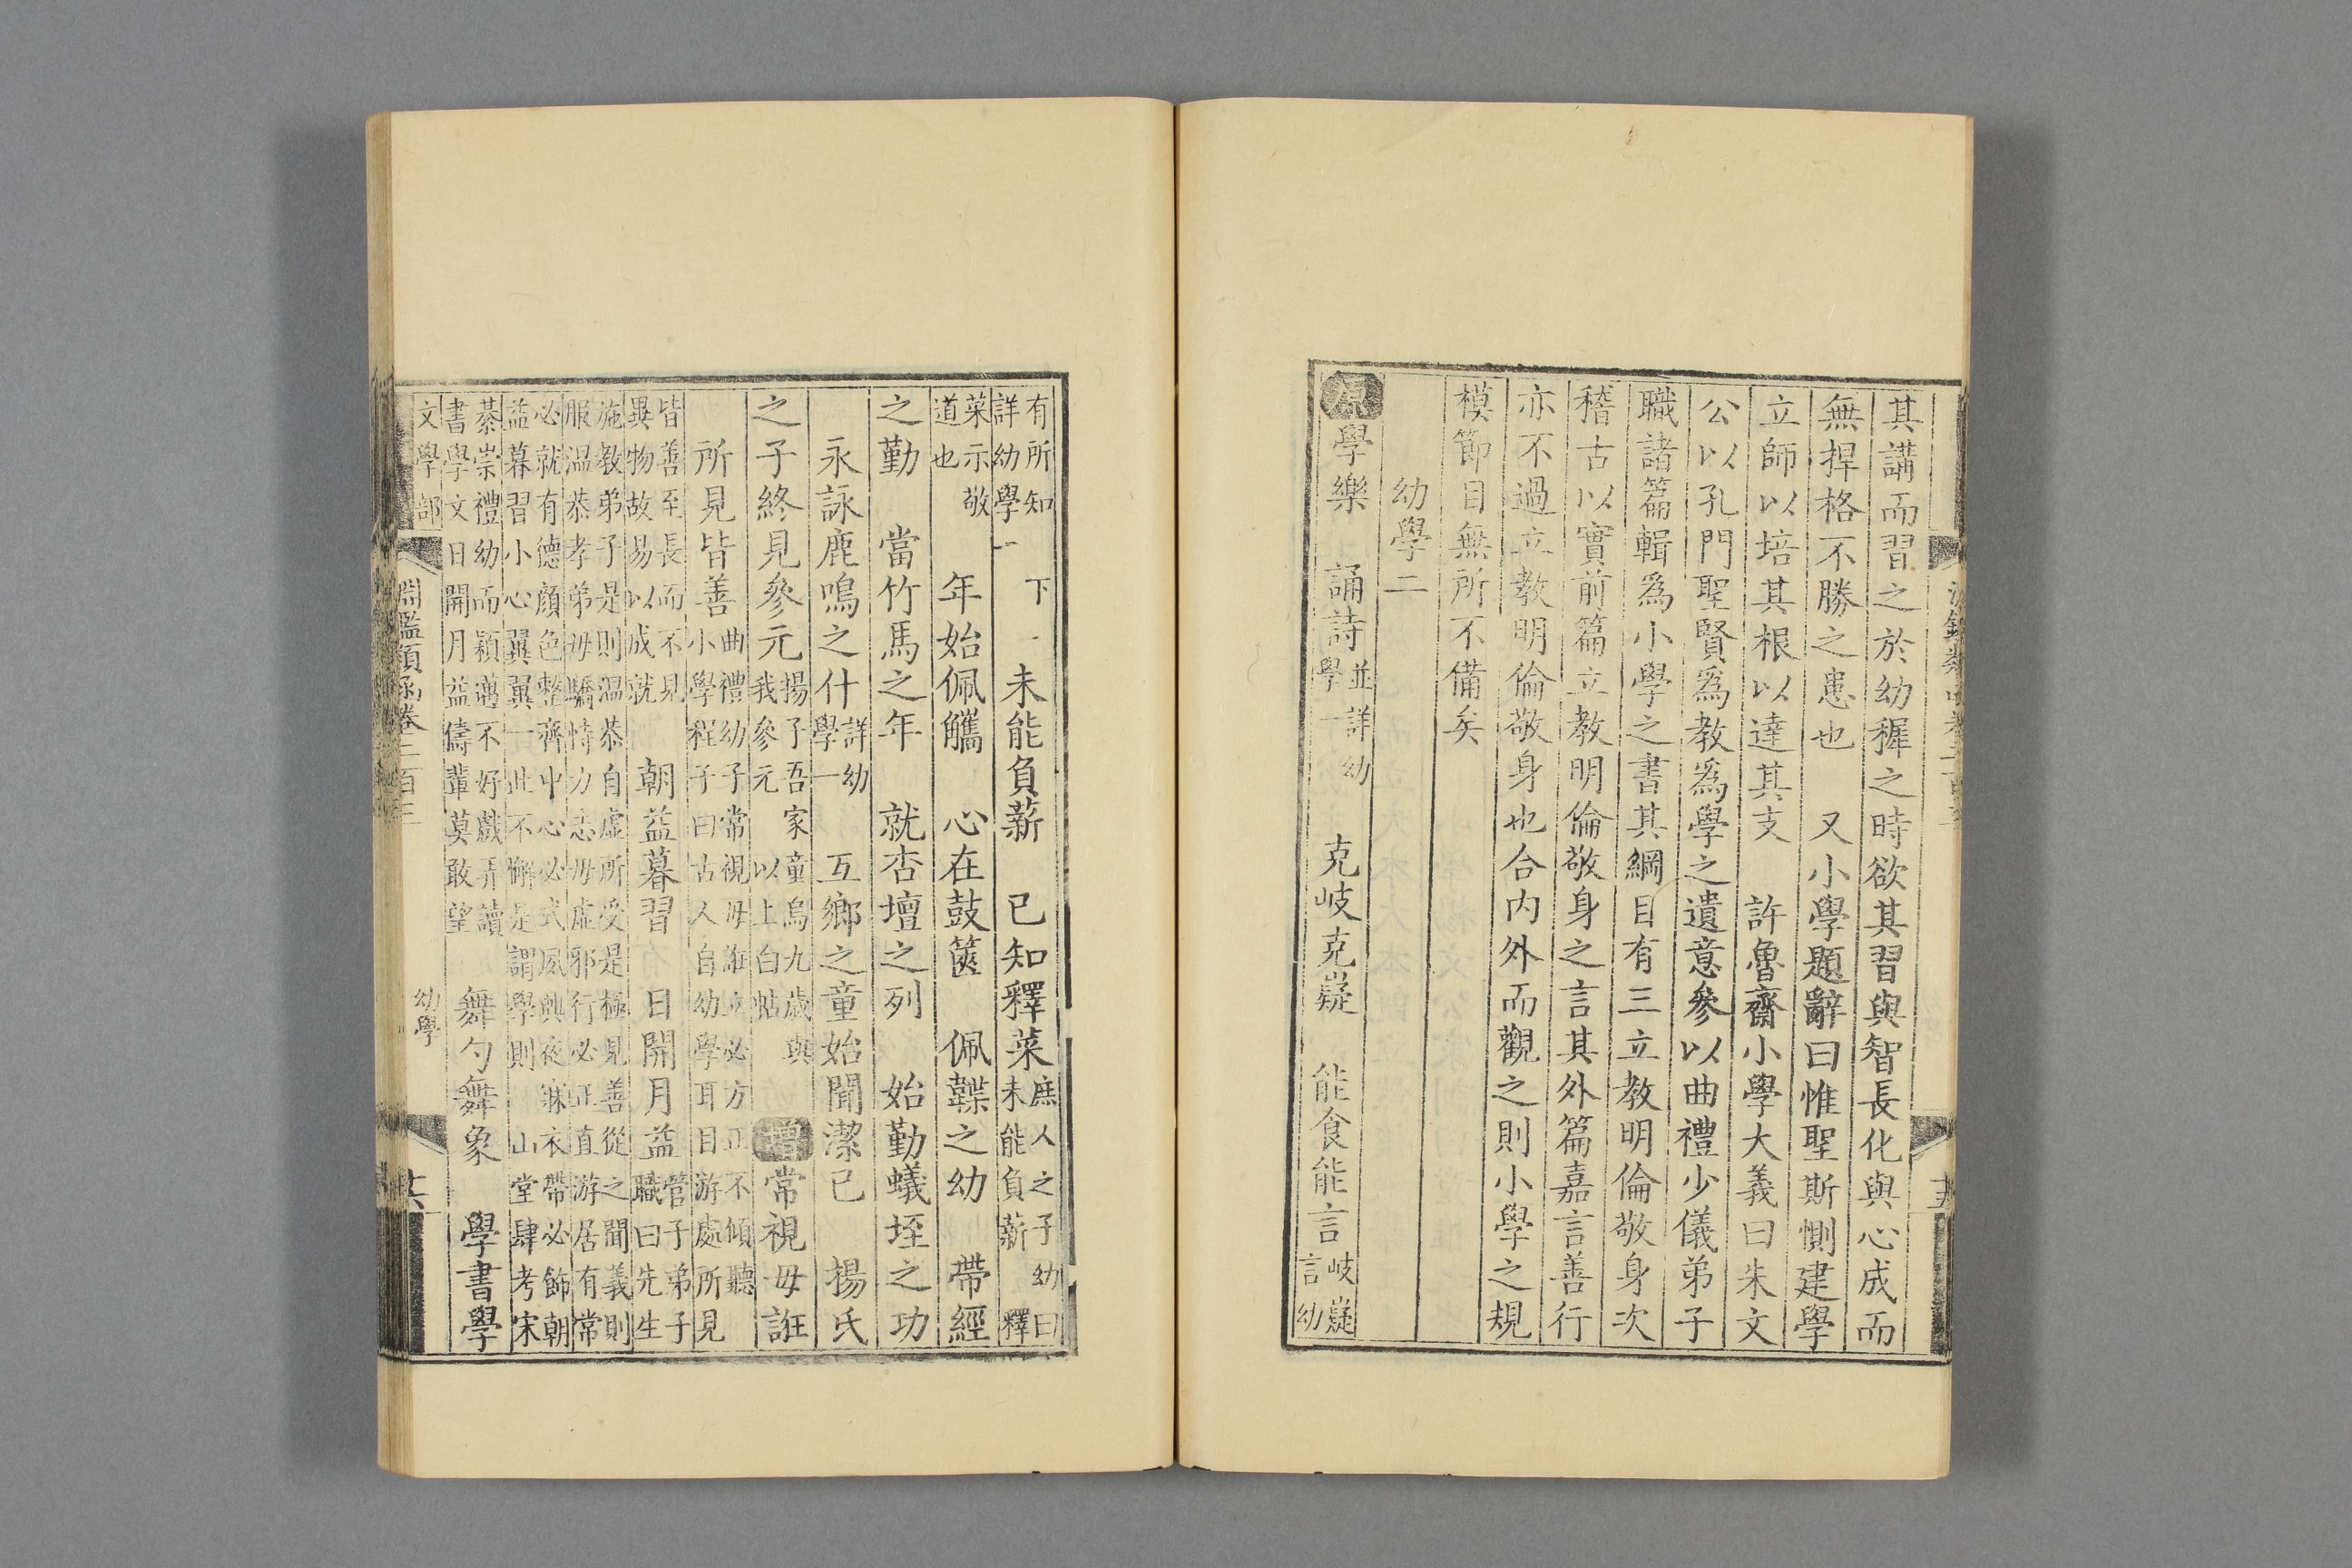 其講而習之於幼穉之時欲其習與智長化與心成而
無捍格不勝之患也　又小學題辭曰惟聖斯惻建學
立師以培其根以達其支　許魯齋小學大義曰朱文
公以孔門聖賢爲教爲學之遺意參以曲禮少儀弟子
職諸篇輯爲小學之書其綱目有三立教明倫敬身次
稽古以實前篇立教明倫敬身之言其外篇嘉言善行
亦不過立教明倫敬身也合內外而觀之則小學之規
模節目無所不備矣
幼學二
原學樂　誦詩並詳幼學一　克岐克嶷　能食能言岐嶷幼言
有所知詳幼學一下　未能負薪　已知釋菜庶人之子幼曰未能負薪釋
菜示敬道也　年始佩觿　心在鼓篋　佩韘之幼　帶經
之勤　當竹馬之年　就杏壇之列　始勤蟻垤之功
永詠鹿鳴之什詳幼學一　互鄉之童始聞潔已　揚氏
之子終見參元揚子吾家童烏九歲與我參元以上白帖　增常視毋誑
所見皆善曲禮幼子常視毋誑立必方正不傾聽小學程子曰古人自幼學耳目游處所見
皆善至長而不見異物故易以成就　朝益暮習　日開月益管子弟子職曰先生
施教弟子是則溫恭自虛所受是極見善從之聞義則服溫恭孝弟毋驕恃力志毋虛邪行必正直游居有常
必就有德顏色整齊中心必式夙興夜寐衣帶必飾朝益暮習小心翼翼一此不懈是謂學則　山堂肆考宋
綦崇禮幼而穎邁不好戲弄讀書學文日開月益儔輩莫敢望　舞勺舞象　學書學
文學部　淵鑑類函卷二百三　幼學